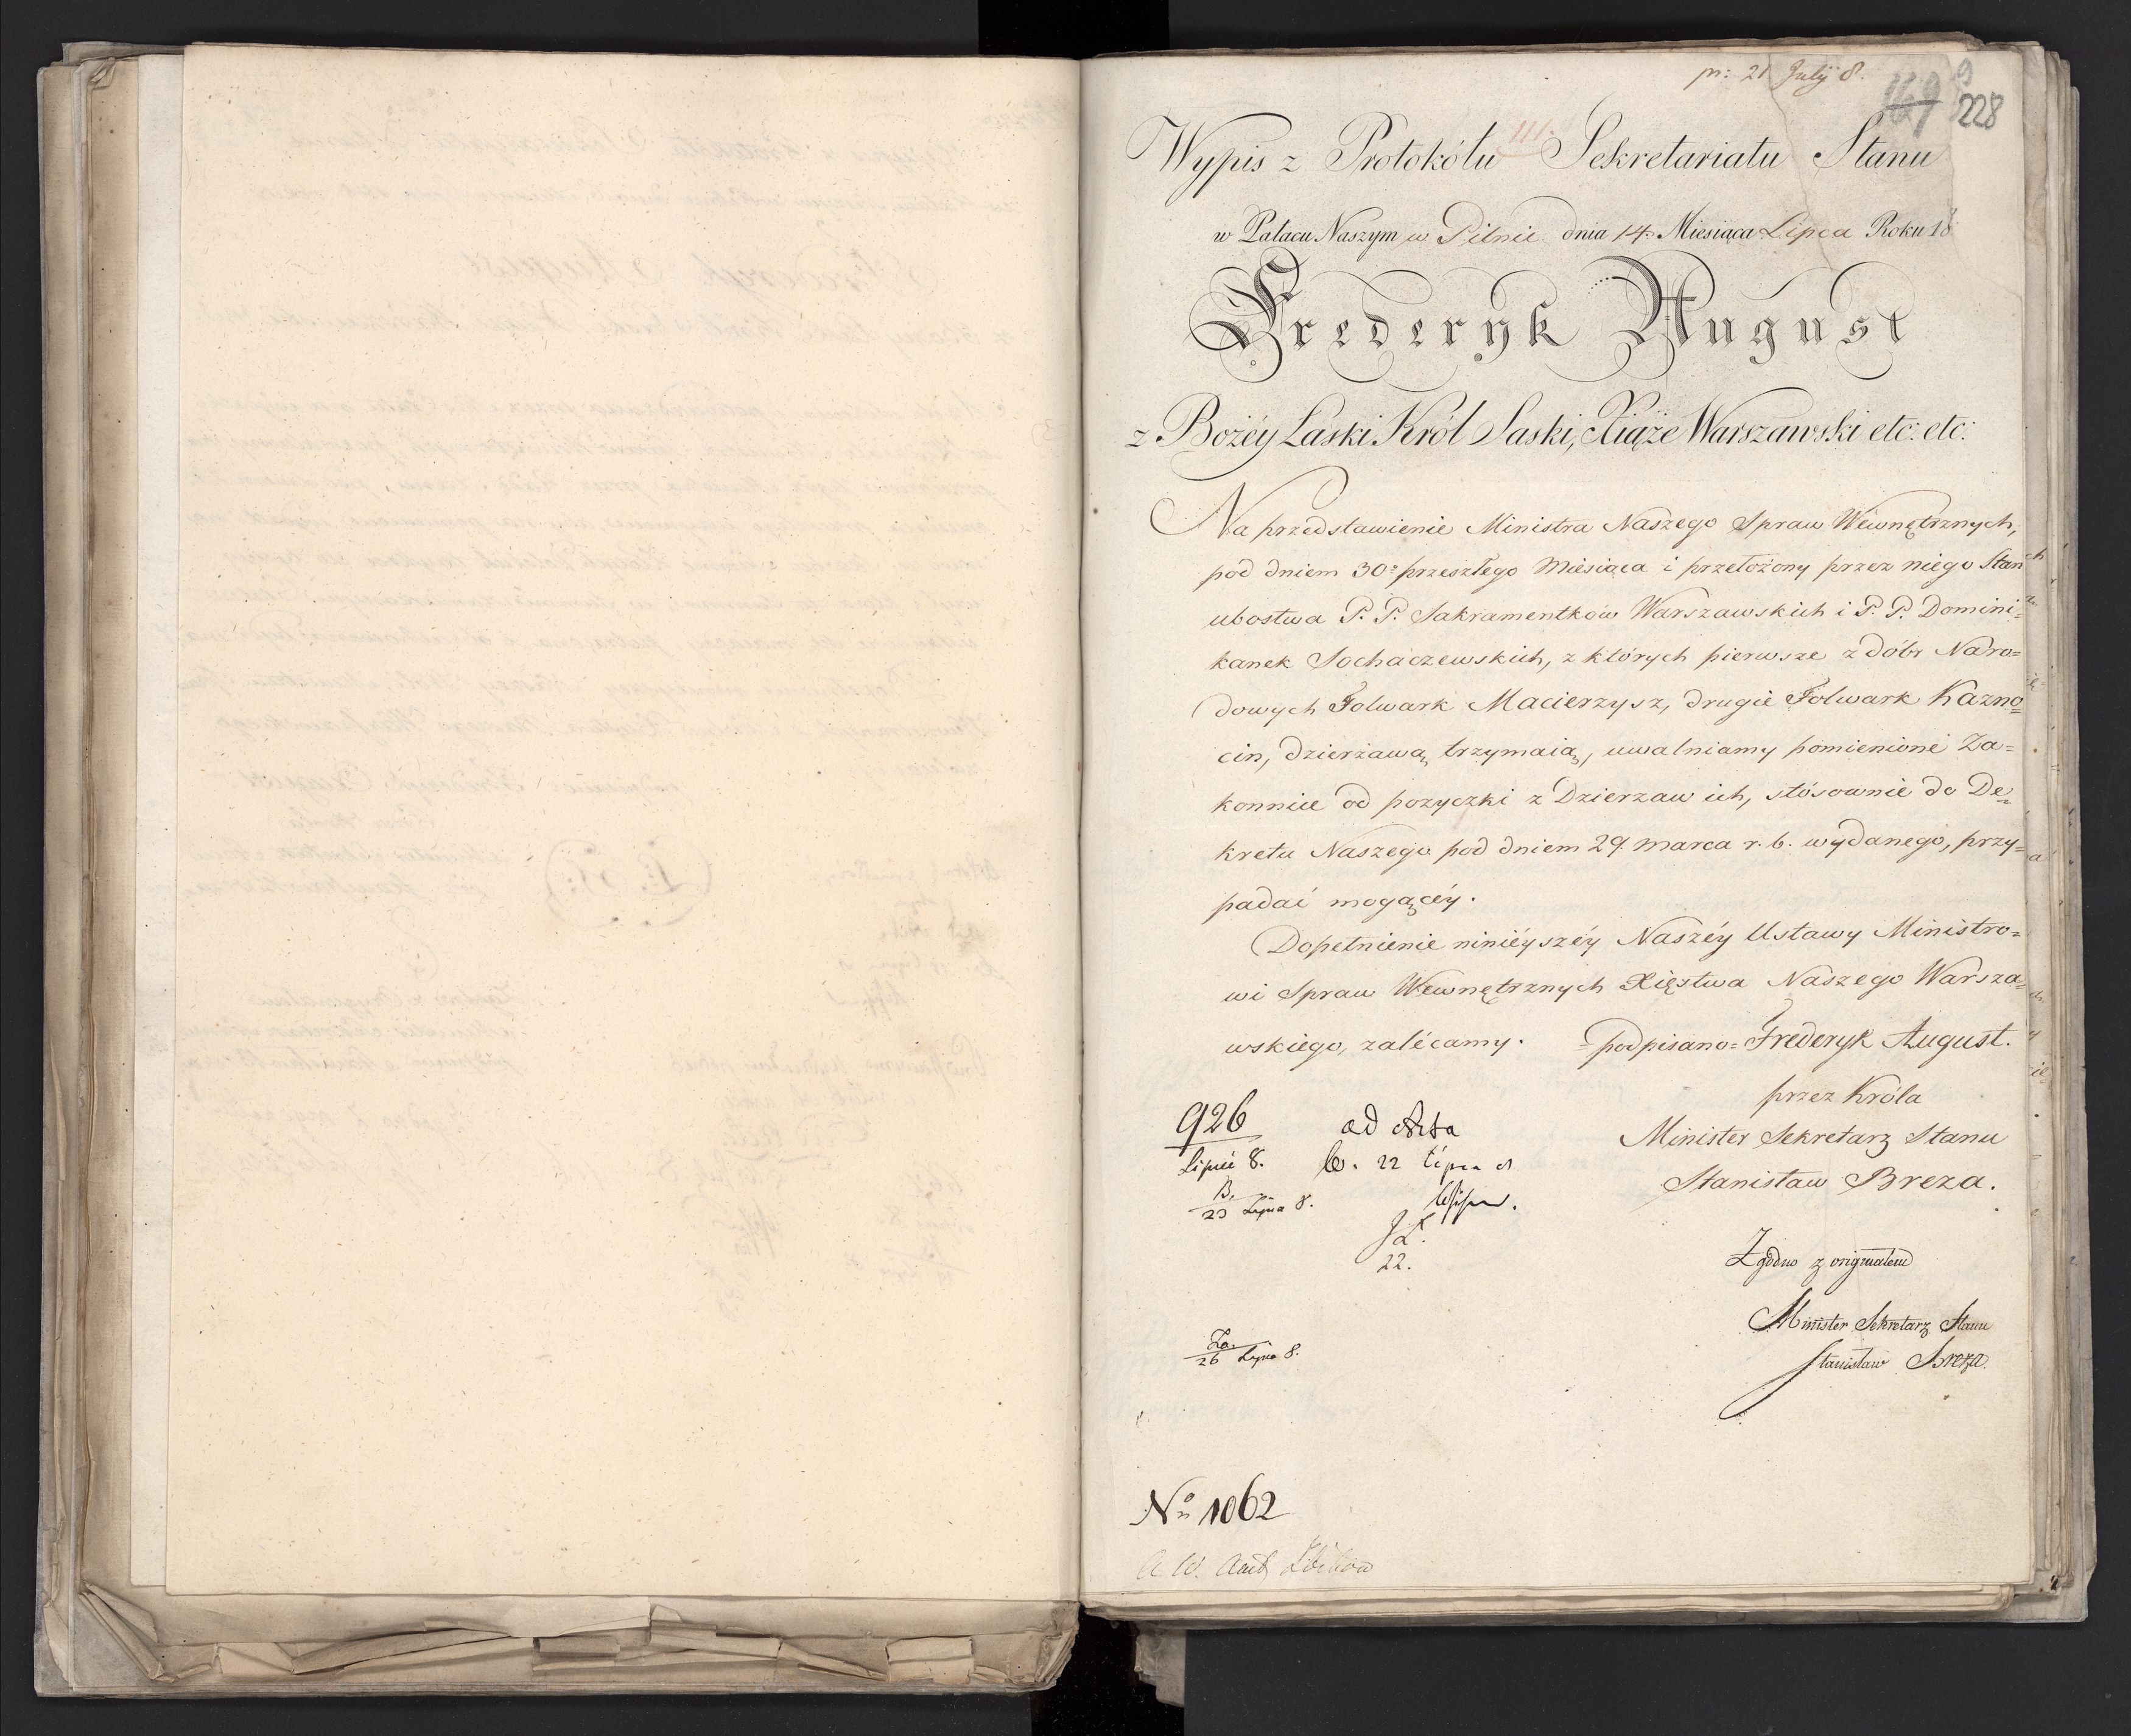 pr: 21 July 8.
228
Wypis z Protokółu Sekretariatu Stanu
w Pałacu Naszym w Pilnie dnia 14. Miesiąca Lipca Roku 18
Frederyk August
z Bożéy Łaski Król Saski, Xiąże Warszawski etc: etc:
Na przedstawienie Ministra Naszego Spraw Wewnętrznych,
pod dniem 30º przeszłego Miesiąca i przełożony przez niego Stan
ubostwa P. P. Sakramentków Warszawskich i P. P. Domini=
kanek Sochaczewskich, z których pierwsze z dóbr Naro=
dowych Folwark Macierzysz, drugie Folwark Kazno=
cin, dzierżawą trzymaią, uwalniamy pomienione Za=
konnice od pożyczki z Dzierzaw ich, stósownie do De=
kretu Naszego pod dniem 29. marca r. b. wydanego, przy=
padać mogącéy.
Dopełnienie niniéyszéy Naszéy Ustawy Ministro=
wi Spraw Wewnętrznych Xięstwa Naszego Warsza=
wskiego, zalécamy. =podpisano= Frederyk August.
przez Króla
Minister Sekretarz Stanu
Stanisław Breza.
926
Lipiec 8.
ad Acta
22 Lipca
B.
23 Lipca 8.
22.
Zgodno z originałem
Minister Sekretarz Stanu
Stanisław Breza.
26 Lipca 8.
No 1062